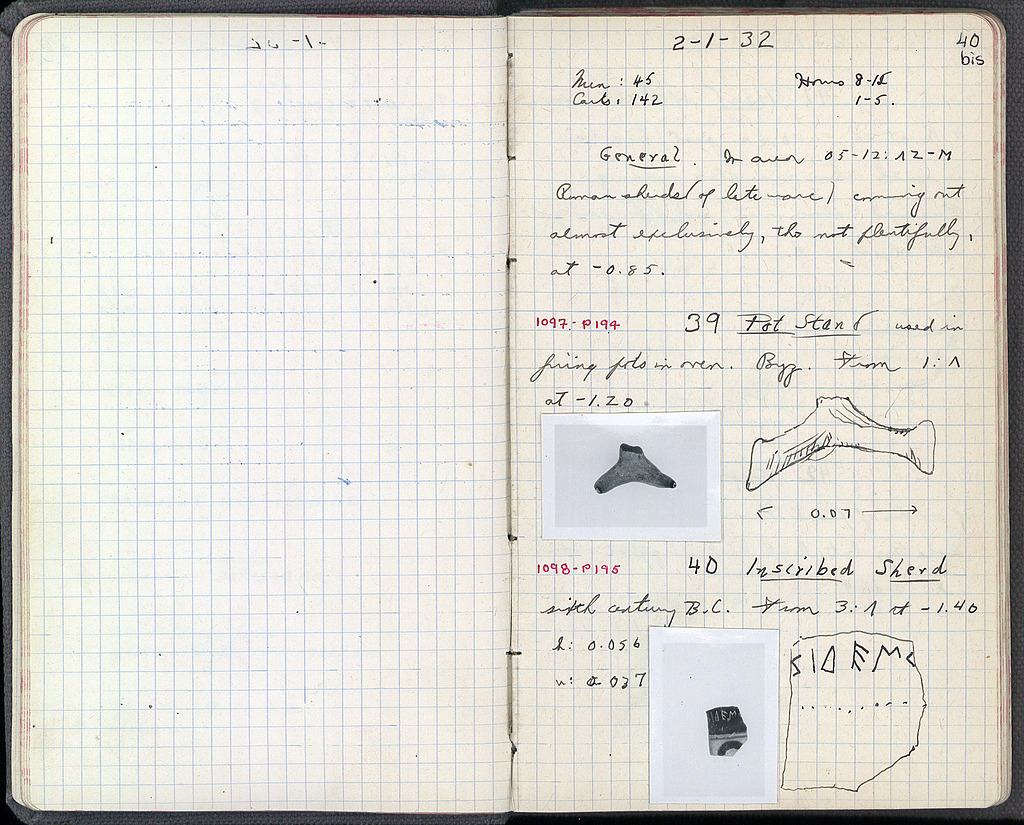 2-1-32
40
bis
Men : 45
Hours 8-12
Carts: 142
1-5.
General. In area 05-12: 12-M
Roman sherds (of late ware) coming out
almost exclusively, tho not plentifully,
at -0.85.
1097-P194 39 Pot Stand used in
firing pots in oven. Byz. From 1: Λ
at -1.20
0.07
1098-P195 40 Inscribed Sherd
sixth century B.C. From 3: Λ at -1.40
h: 0.056
w: 0.037